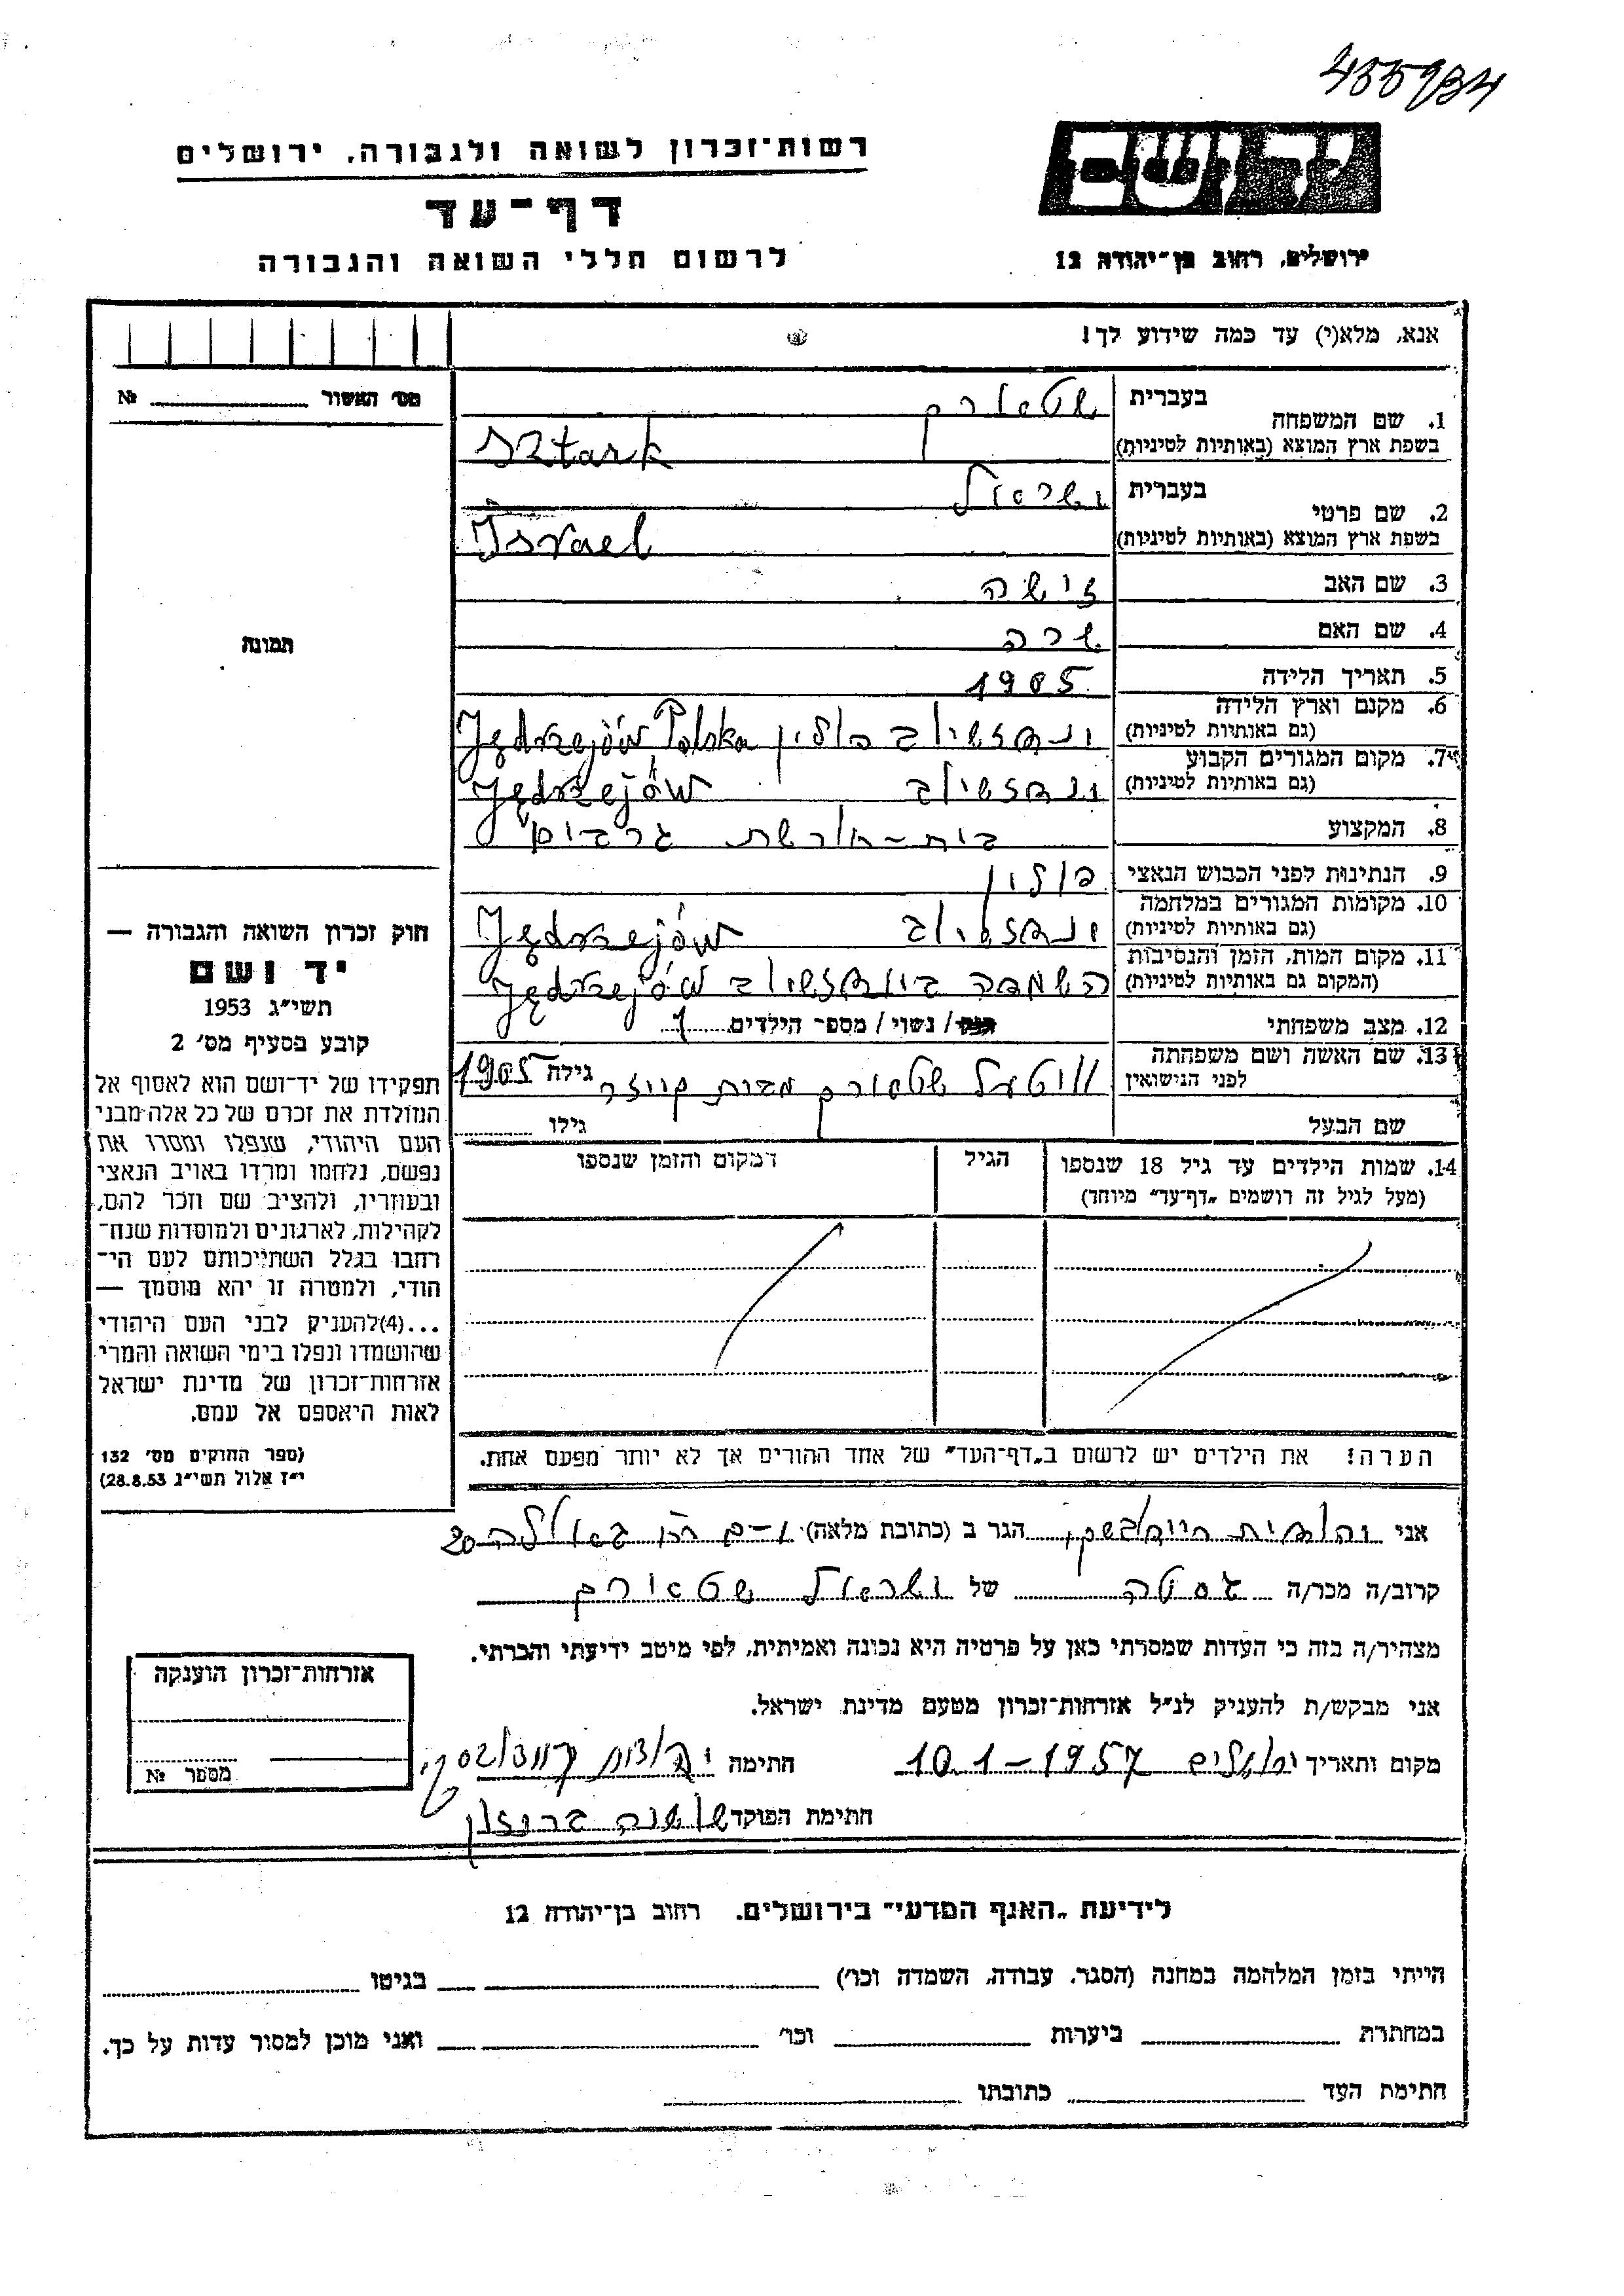 455934
יד ושם
רשות־זכרון לשואה ולגבורה, ירושלים
דף־עד
לרשום חללי השואה והגבורה
ירושלים, רחוב בן־יהודה 12
אנא, מלא(י) עד כמה שידוע לך!
מס׳ האשור №
1. שם המשפחה
בעברית שטארק
בשפת ארץ המוצא (באותיות לטיניות) Sztark
2. שם פרטי
בעברית ישראל
בשפת ארץ המוצא (באותיות לטיניות) Israel
3. שם האב זישה
4. שם האם שרה
5. תאריך הלידה 1905
6. מקום וארץ הלידה
(גם באותיות לטיניות) פולין Jędrzejów Polska
7. מקום המגורים הקבוע
(גם באותיות לטיניות) Jędrzejów
8. המקצוע בית-חרשת גרבים
9. הנתינות לפני הכבוש הנאצי פולין
10. מקומות המגורים במלחמה
(גם באותיות לטיניות) Jędrzejów
11. מקום המות, הזמן והנסיבות
(המקום גם באותיות לטיניות) השמדה Jędrzejów
12. מצב משפחתי רוק / נשוי / מספר הילדים
13. שם האשה ושם משפחתה
לפני הנישואין שטארק מבית גילה 1905
שם הבעל גילו
14. שמות הילדים עד גיל 18 שנספו
(מעל לגיל זה רושמים „דף־עד״ מיוחד)
הגיל
המקום והזמן שנספו
הערה! את הילדים יש לרשום ב„דף־העד״ של אחד ההורים אך לא יותר מפעם אחת.
תמונה
חוק זכרון השואה והגבורה —
יד ושם
תשי״ג 1953
קובע בסעיף מס׳ 2
תפקידו של יד־ושם הוא לאסוף אל
המולדת את זכרם של כל אלה מבני
העם היהודי, שנפלו ומסרו את
נפשם, נלחמו ומרדו באויב הנאצי
ובעוזריו, ולהציב שם וזכר להם,
לקהילות, לארגונים ולמוסדות שנח־
רבו בגלל השתייכותם לעם הי־
הודי, ולמטרה זו יהא מוסמך —
...(4)להעניק לבני העם היהודי
שהושמדו ונפלו בימי השואה והמרי
אזרחות־זכרון של מדינת ישראל
לאות היאספם אל עמם.
(ספר החוקים מס׳ 132
י״ז אלול תשי״ג 28.8.53)
אני יהודית הגר ב (כתובת מלאה) 20
קרוב/ה מכר/ה של ישראל שטארק
מצהיר/ה בזה כי העדות שמסרתי כאן על פרטיה היא נכונה ואמיתית, לפי מיטב ידיעתי והכרתי.
אני מבקש/ת להעניק לנ״ל אזרחות־זכרון מטעם מדינת ישראל.
מקום ותאריך ירושלים 10.1-1957 חתימה
חתימת הפוקד שושנה
אזרחות־זכרון הוענקה
מספר №
לידיעת „האגף המדעי״ בירושלים, רחוב בן־יהודה 12
הייתי בזמן המלחמה במחנה (הסגר, עבודה, השמדה וכו׳) בגיטו
במחתרת ביערות וכו׳ ואני מוכן למסור עדות על כך.
חתימת העד כתובתו